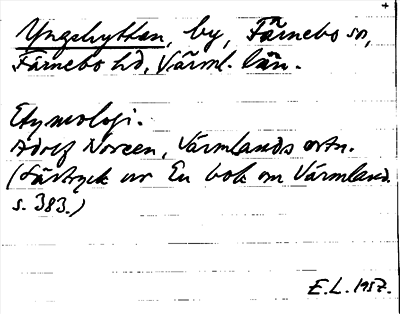 Yngshyttan, by, Färnebo sn,
Färnebo hd, Värml. län.
Etymologi.
Adolf Noreen, Värmlands ortn.
(Särtryck ur En bok om Värmland
s. 383.)
E.L. 1957.